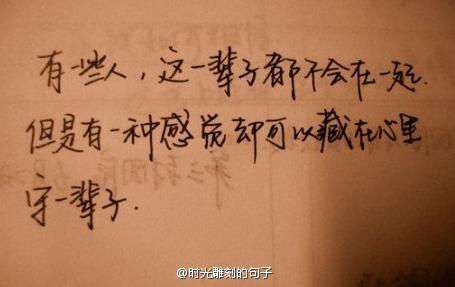 有一些人，这一辈子都不会在一起.
但是有一种感觉却可以藏在心里
守一辈子.
@时光雕刻的句子